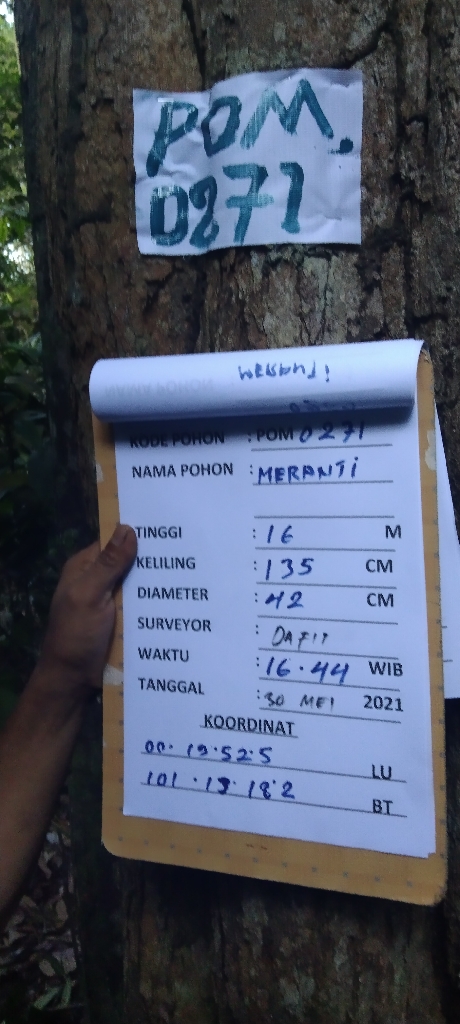 POM.
0271
MERANTI
KODE POHON : POM 0271
NAMA POHON : MERANTI
TINGGI : 16 M
KELILING : 135 CM
DIAMETER : 42 CM
SURVEYOR : DAFIT
WAKTU : 16.44 WIB
TANGGAL : 30 MEI 2021
KOORDINAT
00. 19.52.5 LU
101 . 19. 18.2 BT